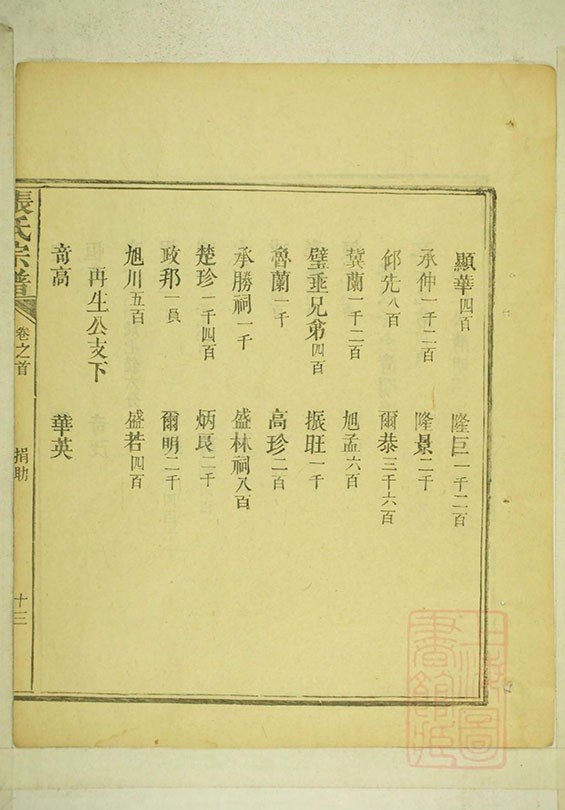 顯華四百 隆巨一千二百
承仲一千二百 隆景二千
仰先八百 爾恭三千六百
蓂蘭一千二百 旭孟六百
璧垂兄弟四百 振旺一千
魯蘭一千 高珍二百
承勝祠一千 盛林祠八百
楚珍一千四百 炳良二千
政邦一員 爾明二千
旭川五百 盛若四百
再生公支下
奇高 華英
張氏宗譜
卷之首
捐助
十三
上海圖書館藏